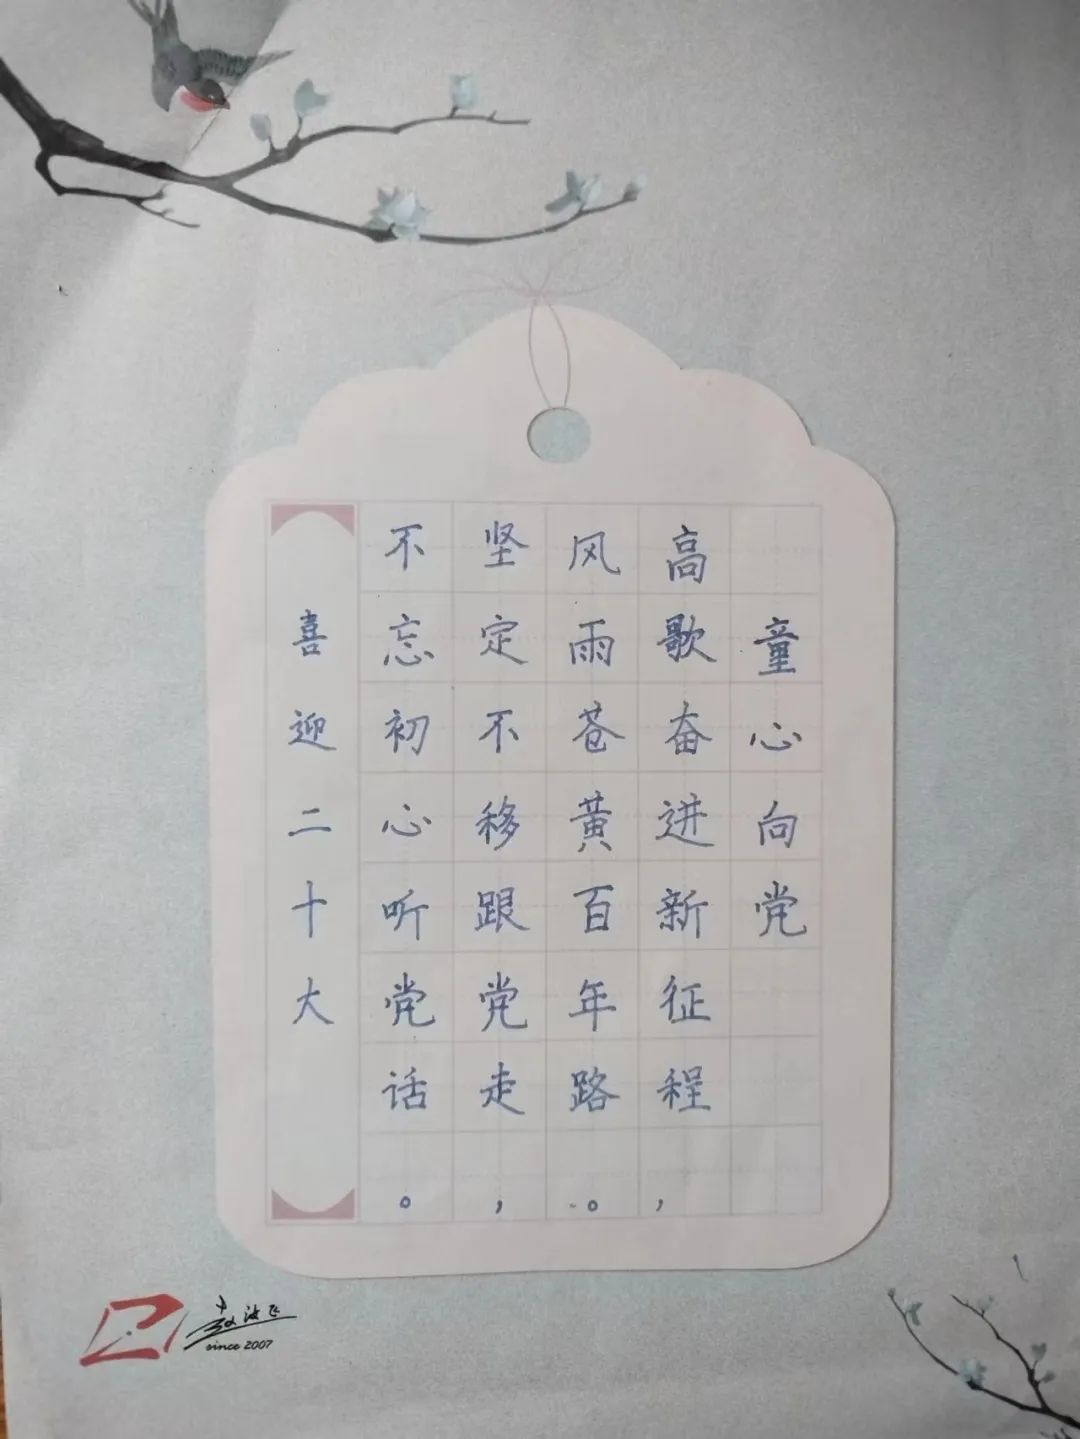 童心向党
高歌奋进新征程，
风雨苍黄百年路。
坚定不移跟党走，
不忘初心听党话。
喜迎二十大
since 2007